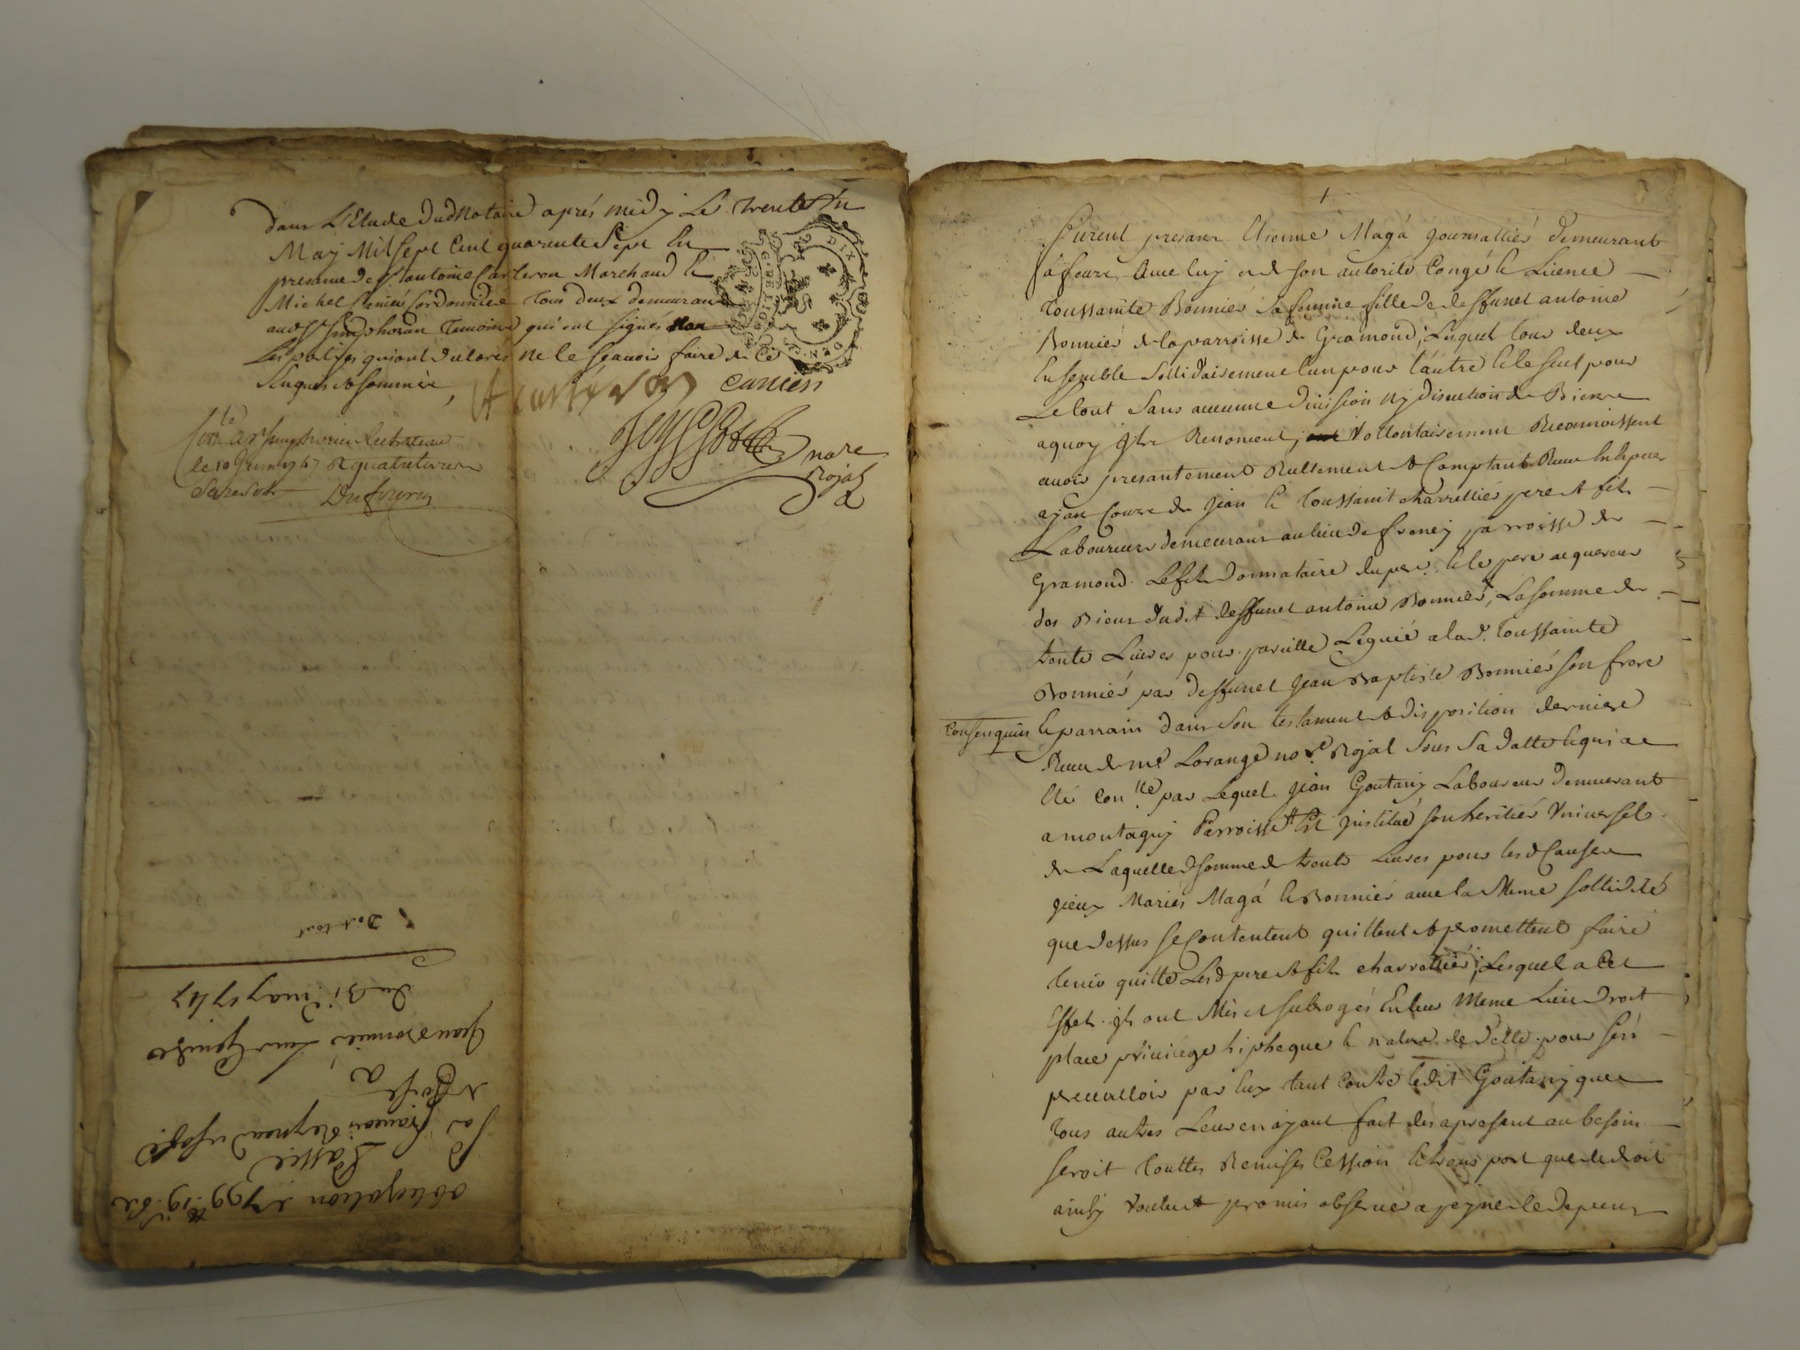 dans L'Etude dud Notaire aprés midy Le trente Un
May Mil Sept Cent quarente Sept En
presance de Sr antoine Carteron Marchand &
Michel Cunien Cordonnier tous deux demeurans
aud St Simphorien temoins qui ont signés non
Les parties qui ont declarés ne le scavoir faire de Ce
Enquis & sommés
ACarteron Cunien
nore
Royal
Conlé a St Simphorien
le 10 Juin 1747 R quatre livres
Dufournel
Du 31 may 1747
obligation de 799ll 19s 6d
Passée
par françois
a
Jean Bonnier
Furent presans Etienne Magá Journalliér demeurant
á feurs Avec luy et de son autorité Congé & Licence
toussainte Bonniér sa femme fille de deffunct antoine
Bonniér de la parroisse de Gramond, Lesquel tous deux
Ensemble Sollidairement l'un pour l'autre & le seul pour
Le tout sans aucunne division ny discution de Biens
aquoy Ils Renoncent, Vollontairement Reconnoissent
avoir presantement Reellement & Comptant Receu En Espece
ayan Cours de Jean & toussaint charretiér pere & fils
Laboureurs demeurant au lieu de froney parroisse de
Gramond Le fils donnataire du pere & le pere acquereur
des Biens dudit deffunct antoine Bonniér, La somme de
trente Livres pour pareille Leguée a lade toussainte
Bonniér par deffunct Jean Baptiste Bonniér son frere
& parrain dans son testament & disposition derniere
Receu de me Lorange nore Royal Sous Sa datte & qui a
été Conllé par Lequel Jean Goutany Laboureur demeurant
a montagny Parroisse Est Institué son heritiér Universel
de Laquelle d somme de trente Livres pour lesd Causes
Iceux Mariés Magá & Bonniér avec la Meme sollidité
que dessus se Contentent quittent & promettent faire
tenir quitte Lesd pere & fils charretiér, Lesquel a Cet
Effet Ils ont Mis et subrogés En leur Meme Lieu droit
place privilége hipheque & nature de dette pour s'en
prevalloir par Eux tant Contre ledit Goutany que
tous autres Leur en ayant fait dés apresent au besoin
seroit touttes Remises Cession & transport que de droit
ainsy voulu & promis observér a peyne de depens